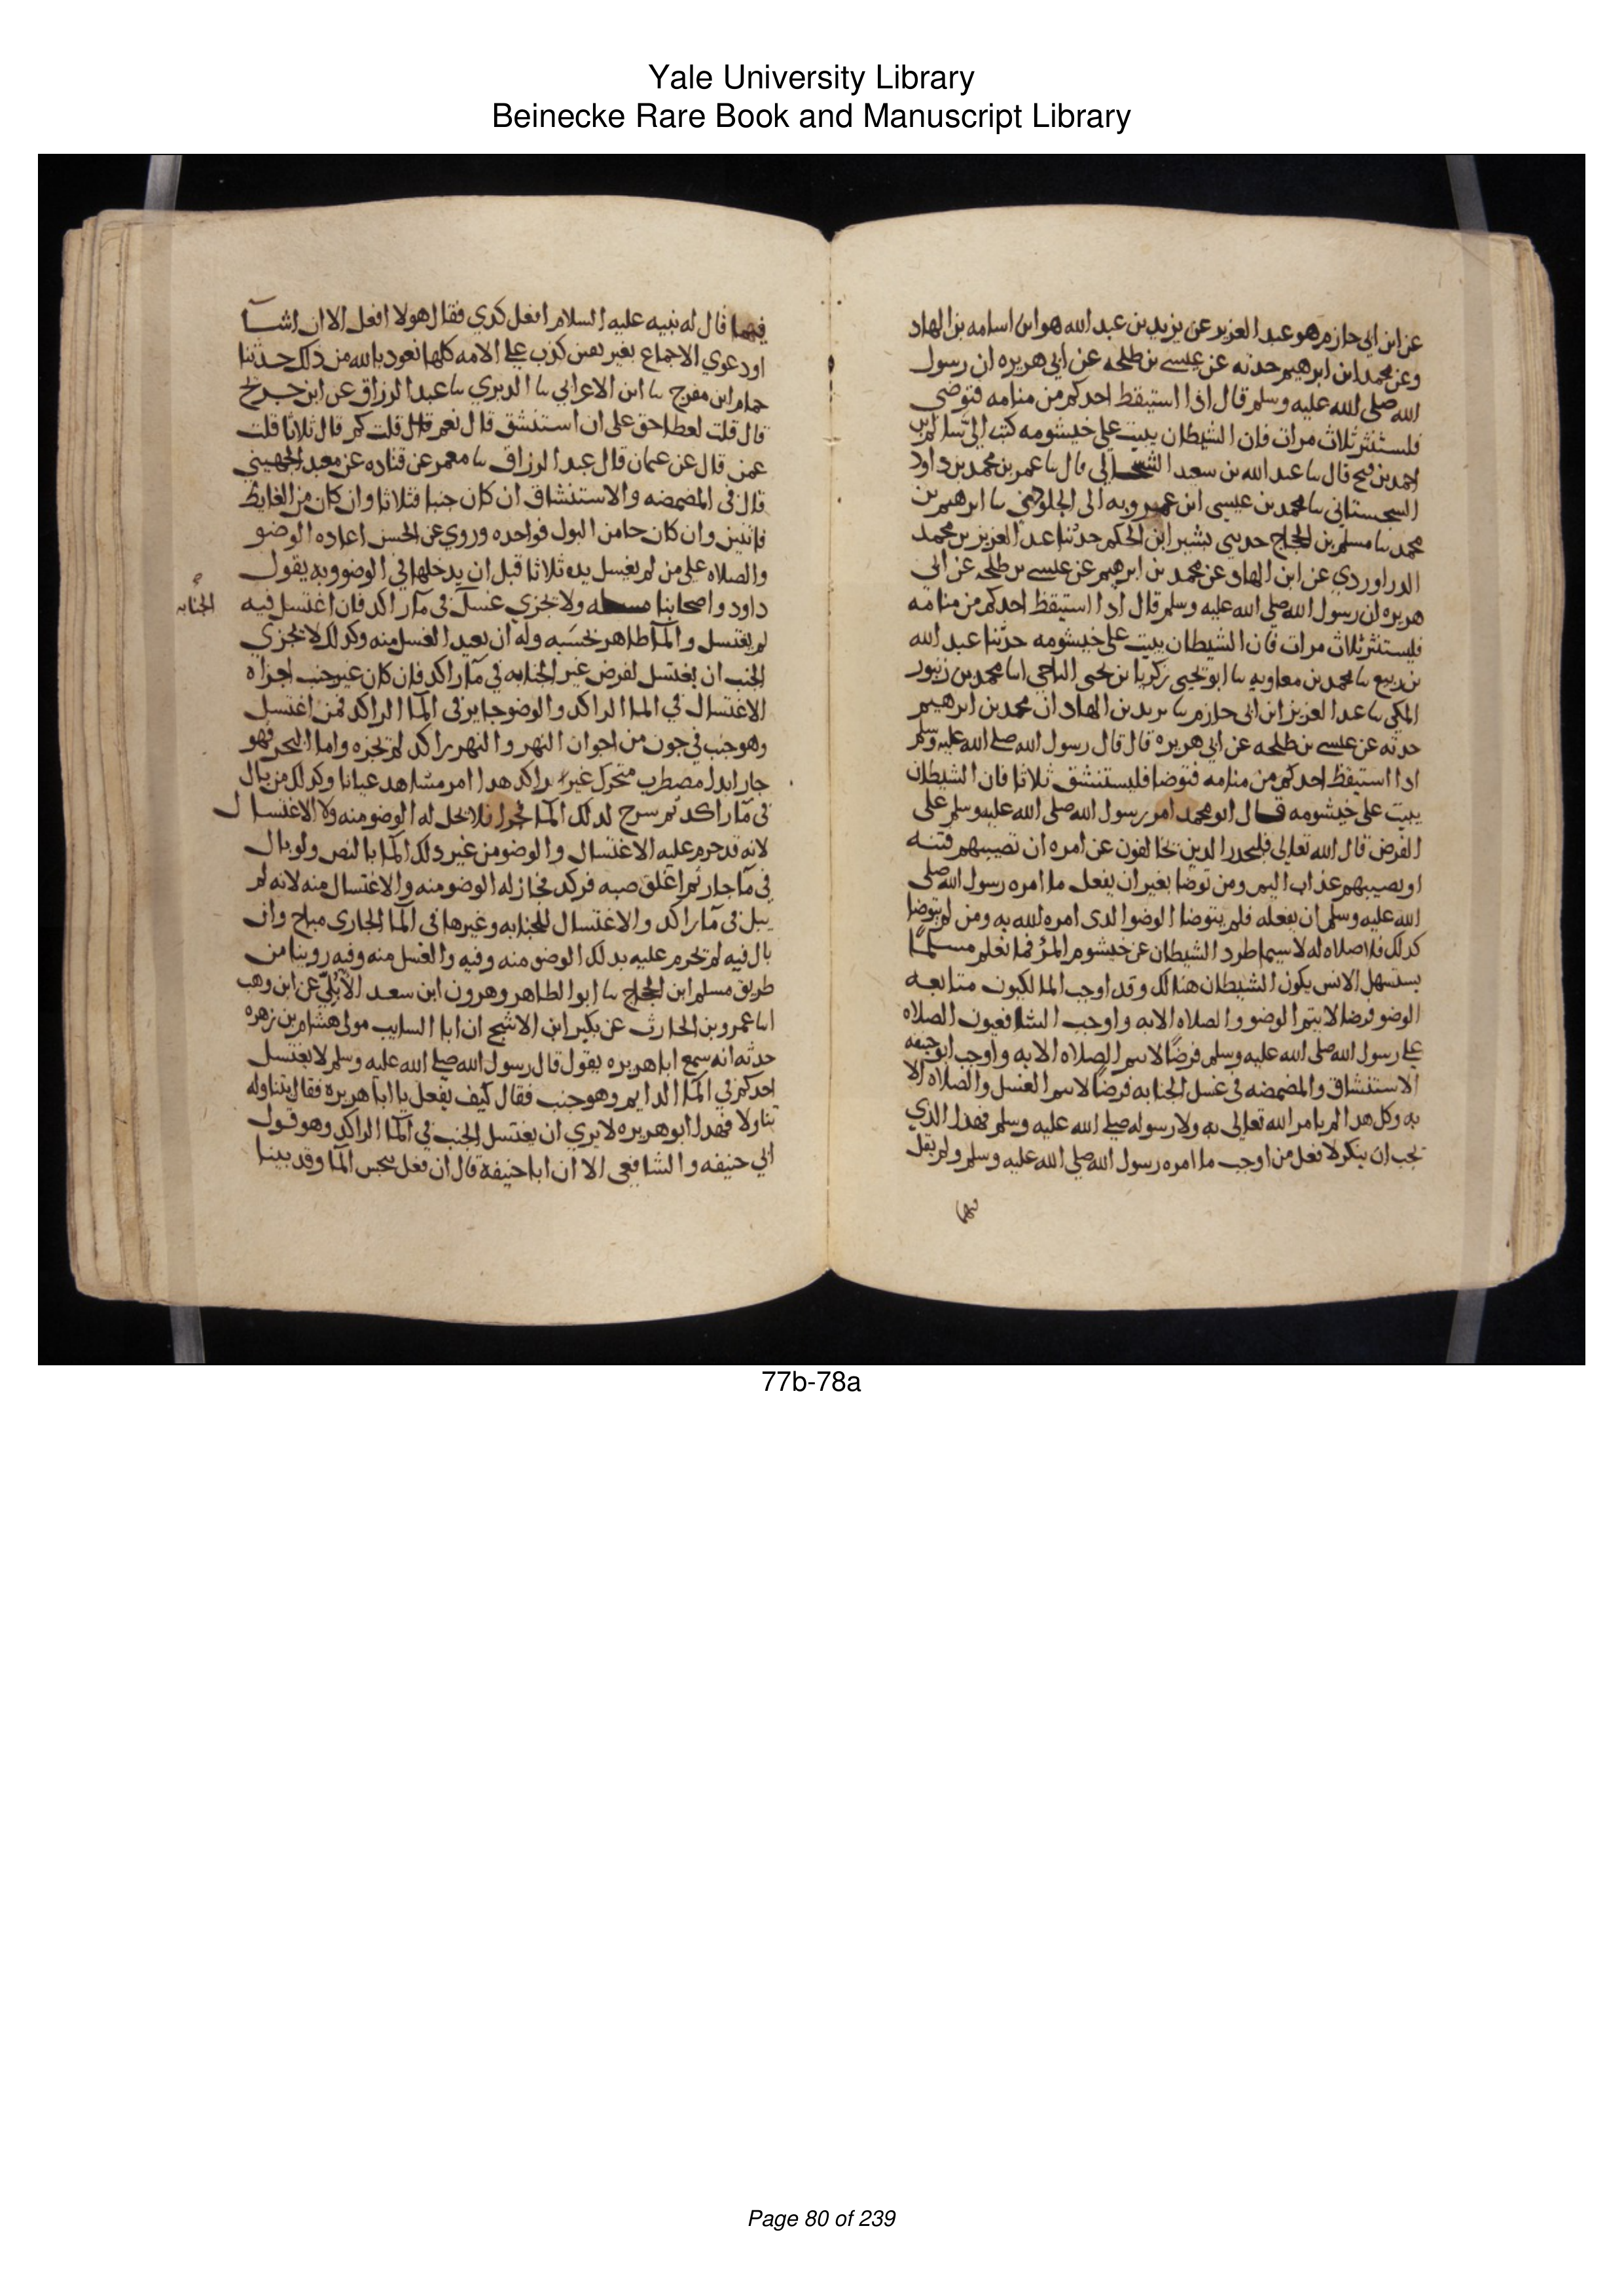 Yale University Library
Beinecke Rare Book and Manuscript Library
عن ابن ابي حازم هو عبد العزيز عن يزيد بن عبد الله هو ابن اسامه بن الهاد
وعن محمد ابن ابرهيم حدثه عن عيسى بن طلحه عن ابي هريره ان رسول
الله صلى الله عليه وسلم قال اذا استيقظ احدكم من منامه فتوضى
فليستنثر ثلاث مرات فان الشيطان يبيت على خيشومه كتب الي سالم بن
احمد بن فتح قال ىا عبد الله بن سعد الشنتجالي قال ىا عمر بن محمد بن داود
السجستاني ىا محمد بن عيسى ابن عمرويه الجلودي ىا ابرهيم بن
محمد ىا مسلم بن الحجاج حدثني بشر ابن الحكم حدثنا عبد العزيز بن محمد
الدراوردي عن ابن الهاد عن محمد بن ابرهيم عن عيسى بن طلحه عن ابي
هريره ان رسول الله صلى الله عليه وسلم قال اذا استيقظ احدكم من منامه
فليستنثر ثلاث مرات فان الشيطان يبيت على خيشومه حدثنا عبد الله
بن ربيع ىا محمد بن معاويه ىا ابو يحيى زكريا بن يحيى الناجي انا محمد بن زنبور
المكي ىا عبد العزيز ابن ابي حازم ىا يزيد بن الهاد ان محمد بن ابرهيم
حدثه عن عيسى بن طلحه عن ابي هريره قال قال رسول الله صلى الله عليه وسلم
اذا استيقظ احدكم من منامه فتوضا فليستنشق ثلاثا فان الشيطان
يبيت على خيشومه قال ابو محمد امر رسول الله صلى الله عليه وسلم على
الفرض قال الله تعالى فليحذر الدين يخالفون عن امره ان تصيبهم فتنه
او يصيبهم عذاب اليم ومن توضا بغير ان يفعل ما امره رسول الله صلى
الله عليه وسلم ان يفعله فلم يتوضا الوضوا لدى امره الله به ومن لم يتوضا
كدلك فلا صلاه له لاسيما طرد الشيطان عن خيشوم المرء فما نعلم مسلما
يستسهل الانس بكون الشيطان هنالك وقد اوجب المالكيون متابعه
الوضو فرضا لا يتم الوضو والصلاه الا به واوجب الشافعيون الصلاه
على رسول الله صلى الله عليه وسلم فرضًا لا تتم الصلاه الا به واوجب ابو حنيفه
الاستنشاق والمضمضه في غسل الجنابه فرضًا لا يتم الغسل والصلاه الا
به وكل هدا لم يامر الله تعالى به ولا رسوله صلى الله عليه وسلم فهذا الذي
يجب ان ينكر لا فعل من اوجب ما امره رسول الله صلى الله عليه وسلم ولم يقل
فيما
فيما قال له نبيه عليه السلام افعل كدي فقال هو لا افعل الا ان اشا
او دعوي الاجماع بغير يقين كذب على الامه كلها نعوذ بالله من ذالك حدثنا
حمام ابن مفرج ىا ابن الاعرابي ىا الدبري ىا عبد الرزاق عن ابن جريج
قال قلت لعطا حق على ان استنشق قال نعم قال قلت كم قال ثلاثا قلت
عمن قال عن عثمان قال عبد الرزاق ىا معمر عن قتاده عن معبد الجهني
قال في المضمضه والاستنشاق ان كان جنبا فثلاثا وان كان من الغايط
فاثنين وان كان جا من البول فواحده وروي عن الحسن اعاده الوضو
والصلاه على من لم يغسل يده ثلاثا قبل ان يدخلها في الوضو وبه يقول
داود واصحابنا مسله ولا يجزي غسل في مآ راكد فان اغتسل فيه
الجنابه
لم يغتسل والمآ طاهر بحسبه وله ان يعيد الغسل منه وكدلك لا يجزي
الجنب ان يغتسل لفرض غير الجنابه في مآ راكد فان كان غير جنب اجزاه
الاغتسال في الما الراكد والوضو جايز في المآ الراكد فمن اغتسل
وهو جنب في جون من اجوان النهر والنهر راكد لم يجزه واما البحر فهو
جار ابدا مضطرب متحرك غير راكد هدا امر مشاهد عيانا وكدلك من بال
في مآ راكد ثم سرح لدلك المآ فجرا فلا يحل له الوضو منه ولا الاغتسال
لانه قد حرم عليه الاغتسال والوضو من عير دلك المآ بالنص ولو بال
في مآ جار ثم اغلق صبه فركد فجاز له الوضو منه والاغتسال منه لانه لم
يبل في مآ راكد والاغتسال للجنابه وغيرها في المآ الجاري مباح وان
بال فيه لم تحرم عليه بدلك الوضو منه وفيه والغسل منه وفيه روينا من
طريق مسلم ابن الحجاج ىا ابو الطاهر وهرون ابن سعد الأيْلي عن ابن وهب
انا عمرو بن الحارث عن بكير ابن الاشج ان ابا السايب مولى هشام بن زهره
حدثه انه سمع ابا هريره يقول قال رسول الله صلى الله عليه وسلم لا يغتسل
احدكم في المآ الدايم وهو جنب فقال كيف يفعل يا ابا هريرة فقال يتناوله
تناولا فهدا ابو هريره لا يري ان يغتسل الجنب في المآ الراكد وهو قول
ابي حنيفه والشافعي الا ان ابا حنيفة قال ان فعل نجس المآ وقد بينا
77b-78a
Page 80 of 239